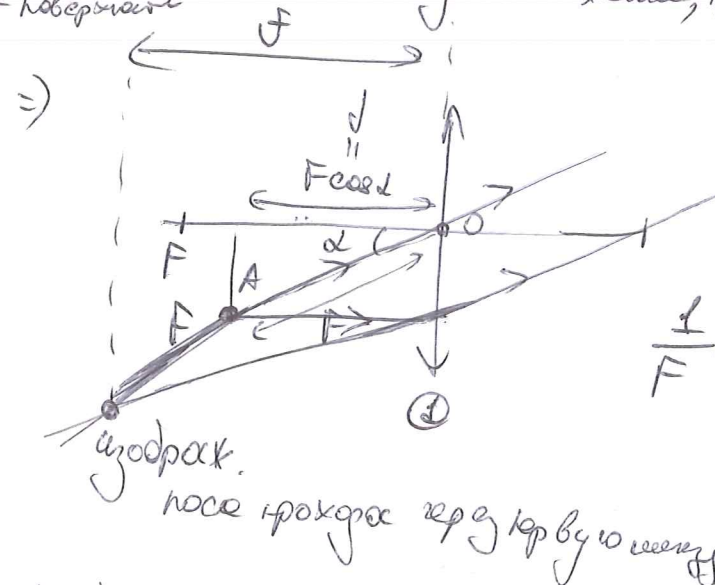 - поверхност
f
=)
d
=
F cos α
O
F
α
A
F
F
1/F
①
изображ.
после проход через первую линзу